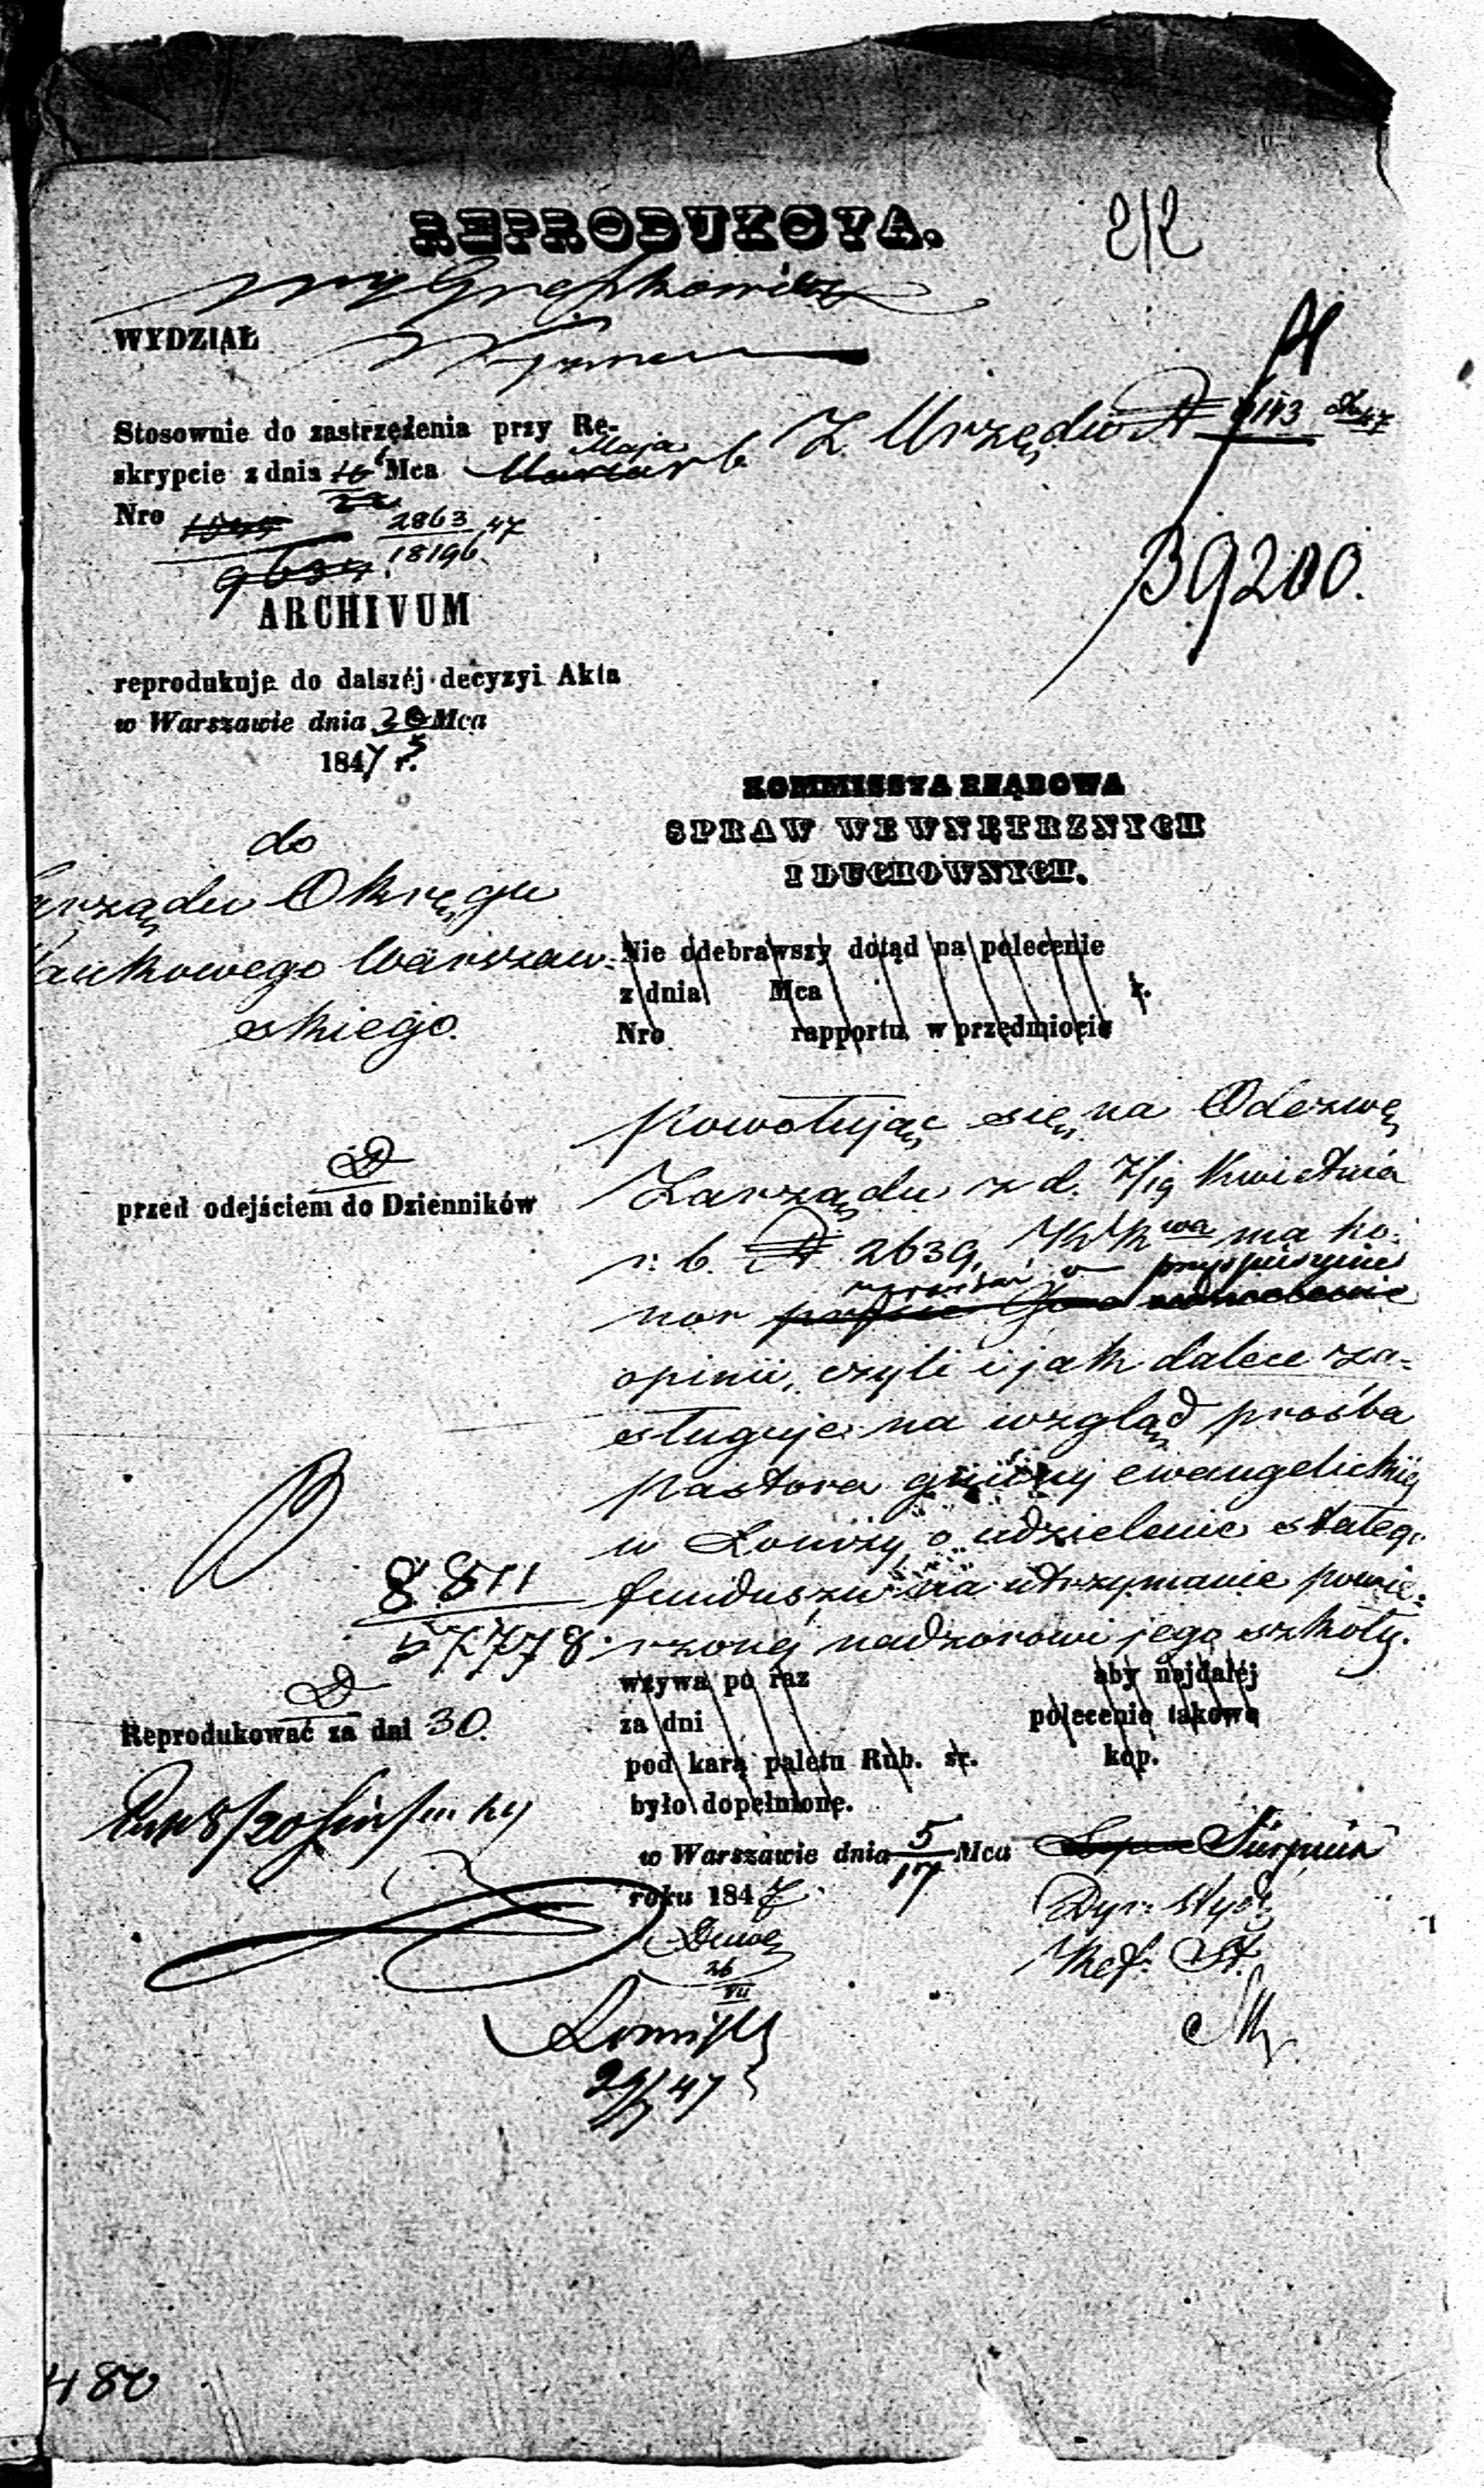 REPRODUKCYA.
212
WYDZIAŁ
Stosownie do zastrzeżenia przy Re-
skrypcie z dnia 10 Mca Maja r. b.
22
Z Urzędu № 4113
Nro 2863 47
18196
9634
B 9200.
ARCHIVUM
reprodukuje do dalszéj decyzyi Akta
w Warszawie dnia 20 Mca
1847 r. 5
KOMMISSYA RZĄDOWA
SPRAW WEWNĘTRZNYCH
I DUCHOWNYCH.
do
arządu Okręgu
aukowego Warszaw-
skiego.
Nie odebrawszy dotąd na polecenie
z dnia Mca r.
Nro rapportu w przedmiocie
Powołując się na Odezwę
Zarządu z d. 7/19 Kwietnia
r. b. № 2639, KR wa ma ho-
nor upraszać o przyspieszenie
opinii, czyli i jak dalece za-
sługuje na wzgląd prośba
Pastora gminy ewangelickiéj
w Łomży o udzielenie stałego
funduszu na utrzymanie powie-
rzonéj nadzorowi jego szkoły.
przed odejściem do Dzienników
8811
57778
Reprodukować za dni 30.
wzywa po raz aby najdaléj
za dni polecenie takowe
pod karą paletu Rub. sr. kop.
było dopełnione.
w Warszawie dnia 5/17 Mca Lipca Sierpnia
roku 1847.
Dyr. Wydz.
Szef. St.
26
VII
480